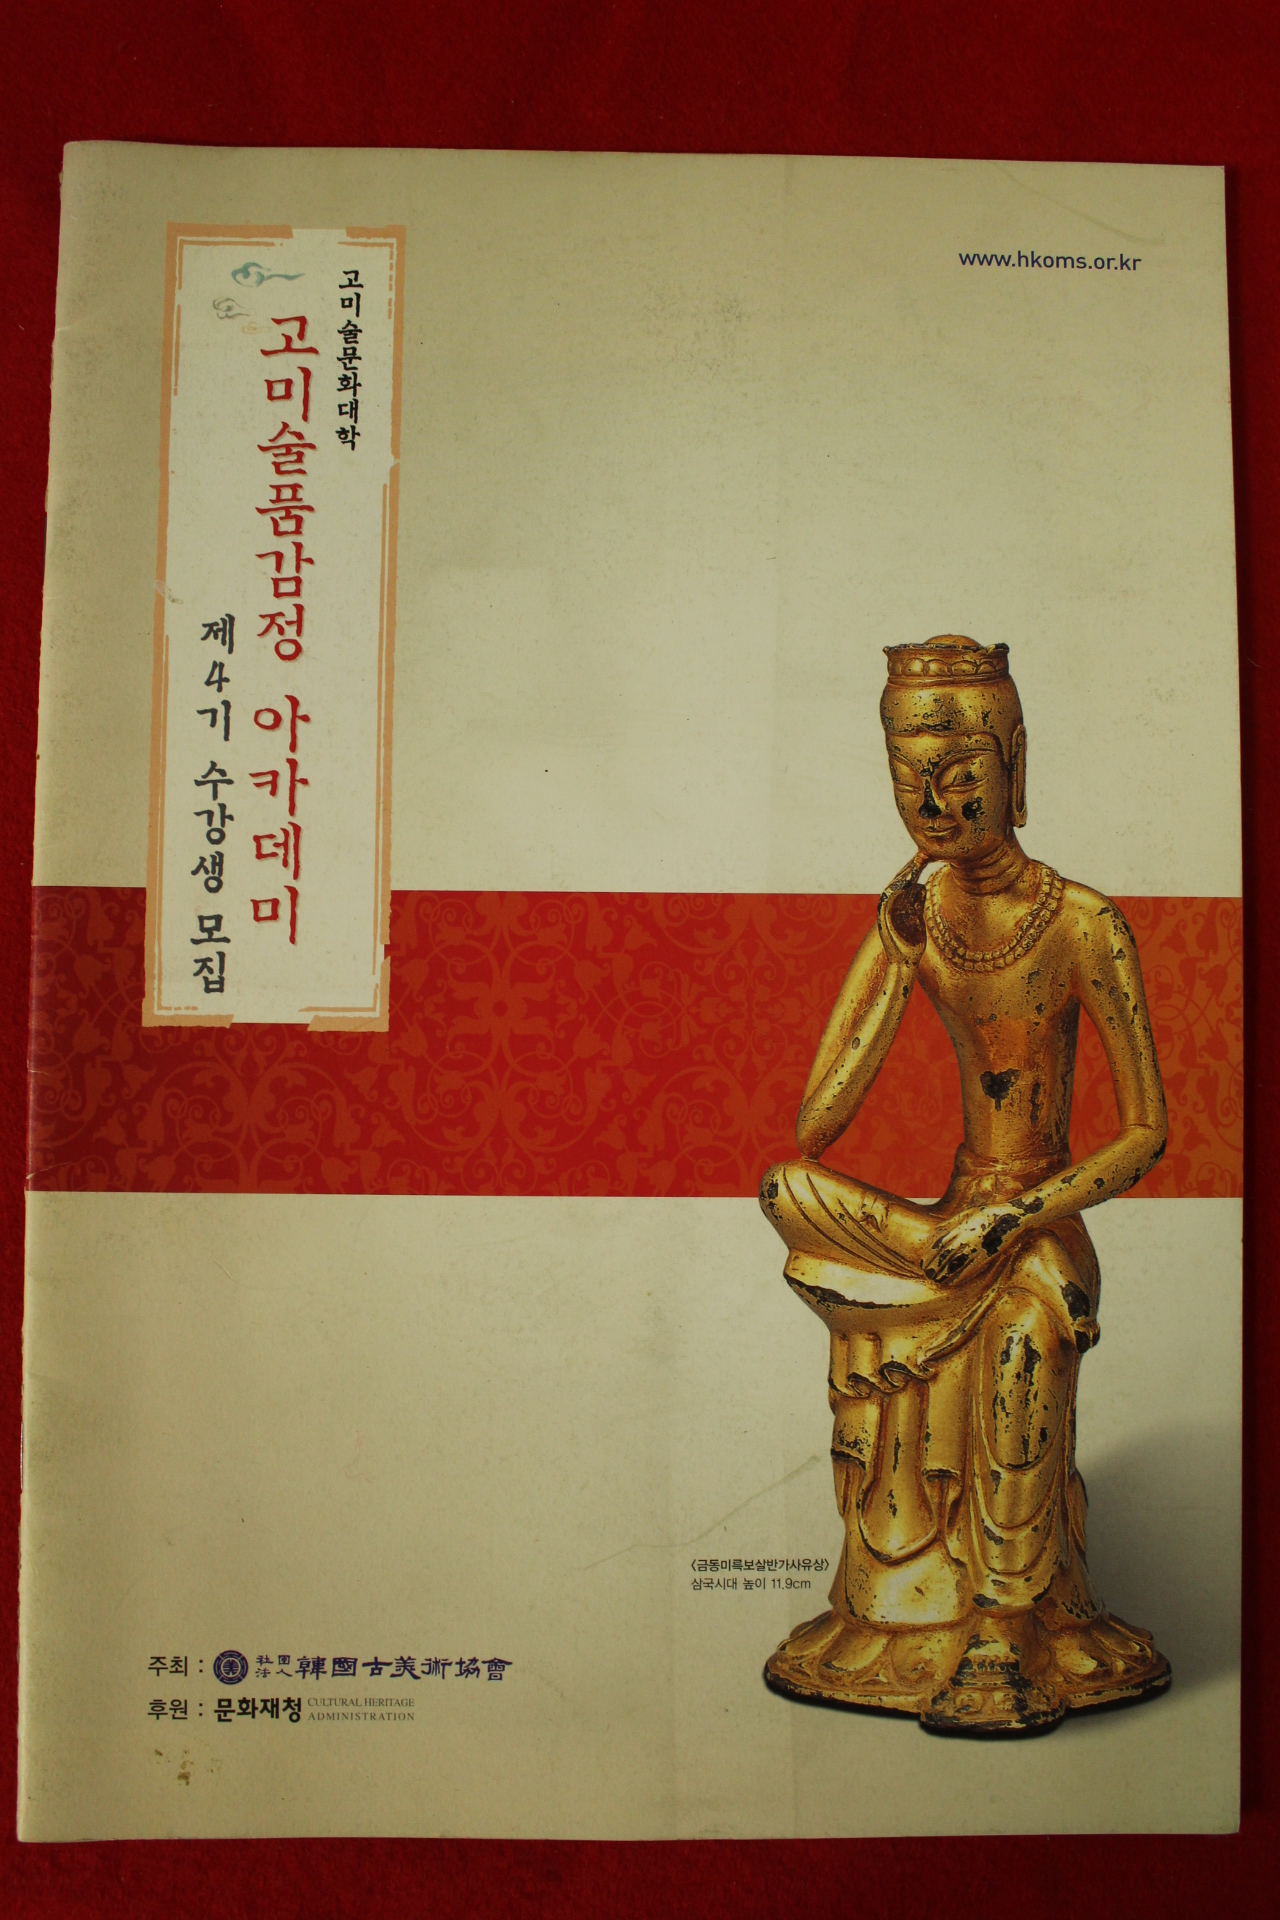 www.hkoms.or.kr
고미술문화대학
고미술품감정 아카데미
제4기 수강생 모집
〈금동미륵보살반가사유상〉
삼국시대 높이 11.9cm
주최 : 社團法人 韓國古美術協會
후원 : 문화재청 CULTURAL HERITAGE ADMINISTRATION